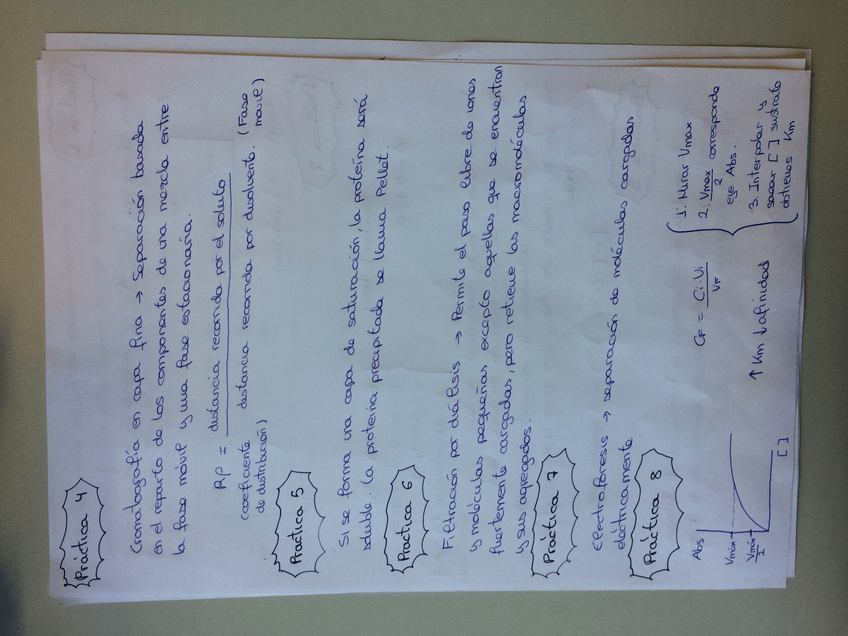 Práctica 4
Cromatografía en capa fina → Separación basada
en el reparto de los componentes de una mezcla entre
la fase móvil y una fase estacionaria.
RP = distancia recorrida por el soluto
distancia recorrida por disolvente. (Fase móvil)
(coeficiente
de distribución)
Práctica 5
Si se forma una capa de saturación, la proteína será
soluble. La proteína precipitada se llama Pellet.
Práctica 6
Filtración por diálisis → Permite el paso libre de iones
y moléculas pequeñas excepto aquellas que se encuentran
fuertemente cargadas, pero retiene las macromoléculas
y sus agregados.
Práctica 7
Electroforesis → separación de moléculas cargadas
eléctricamente
Práctica 8
Abs
Vmáx
Vmáx
2
[ ]
CF = Ci·Vi
VF
↑ Km ↓ afinidad
1. Mirar Vmax
2. Vmax corresponde
2
eje Abs.
3. Interpolar y
sacar [ ] sustrato
obtienes Km